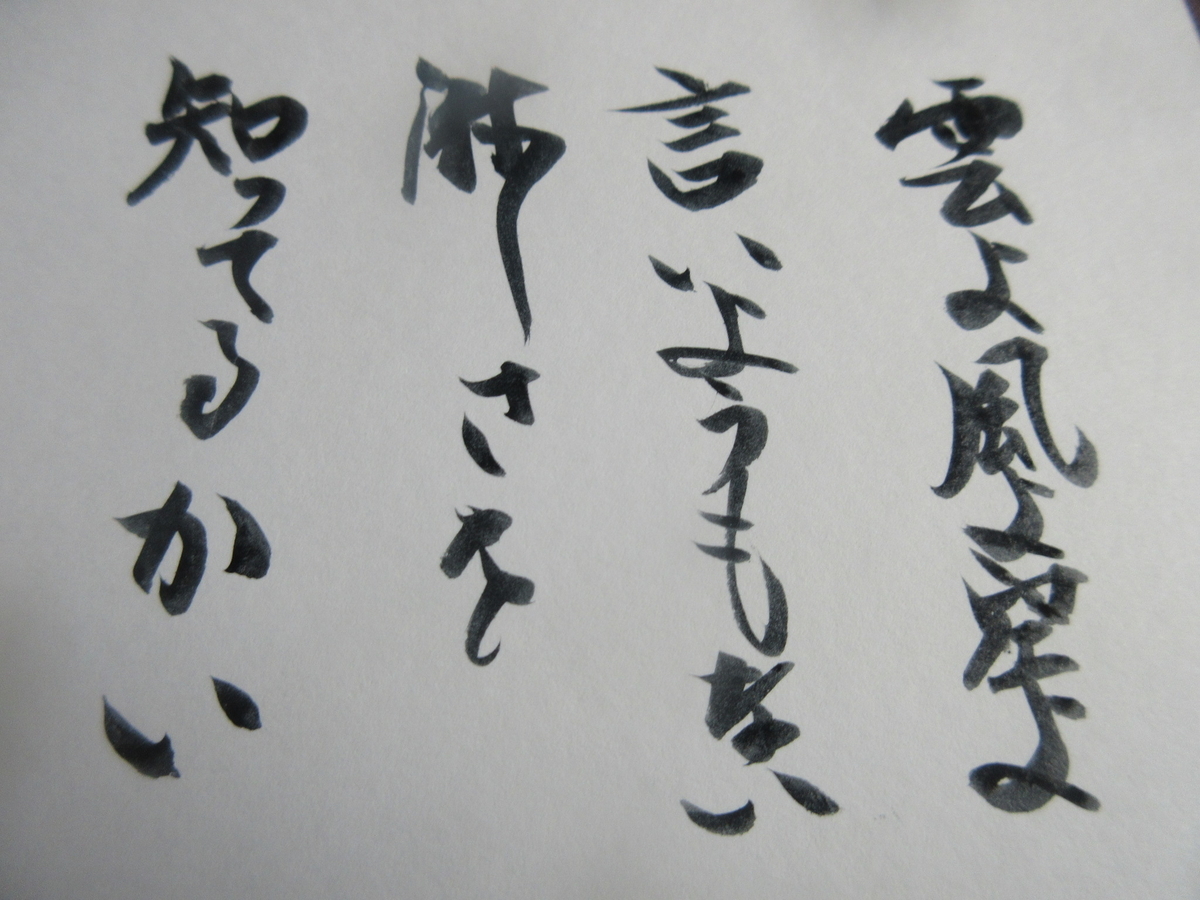 雲よ風よ星よ
言いようもない
淋しさを
知ってるかい